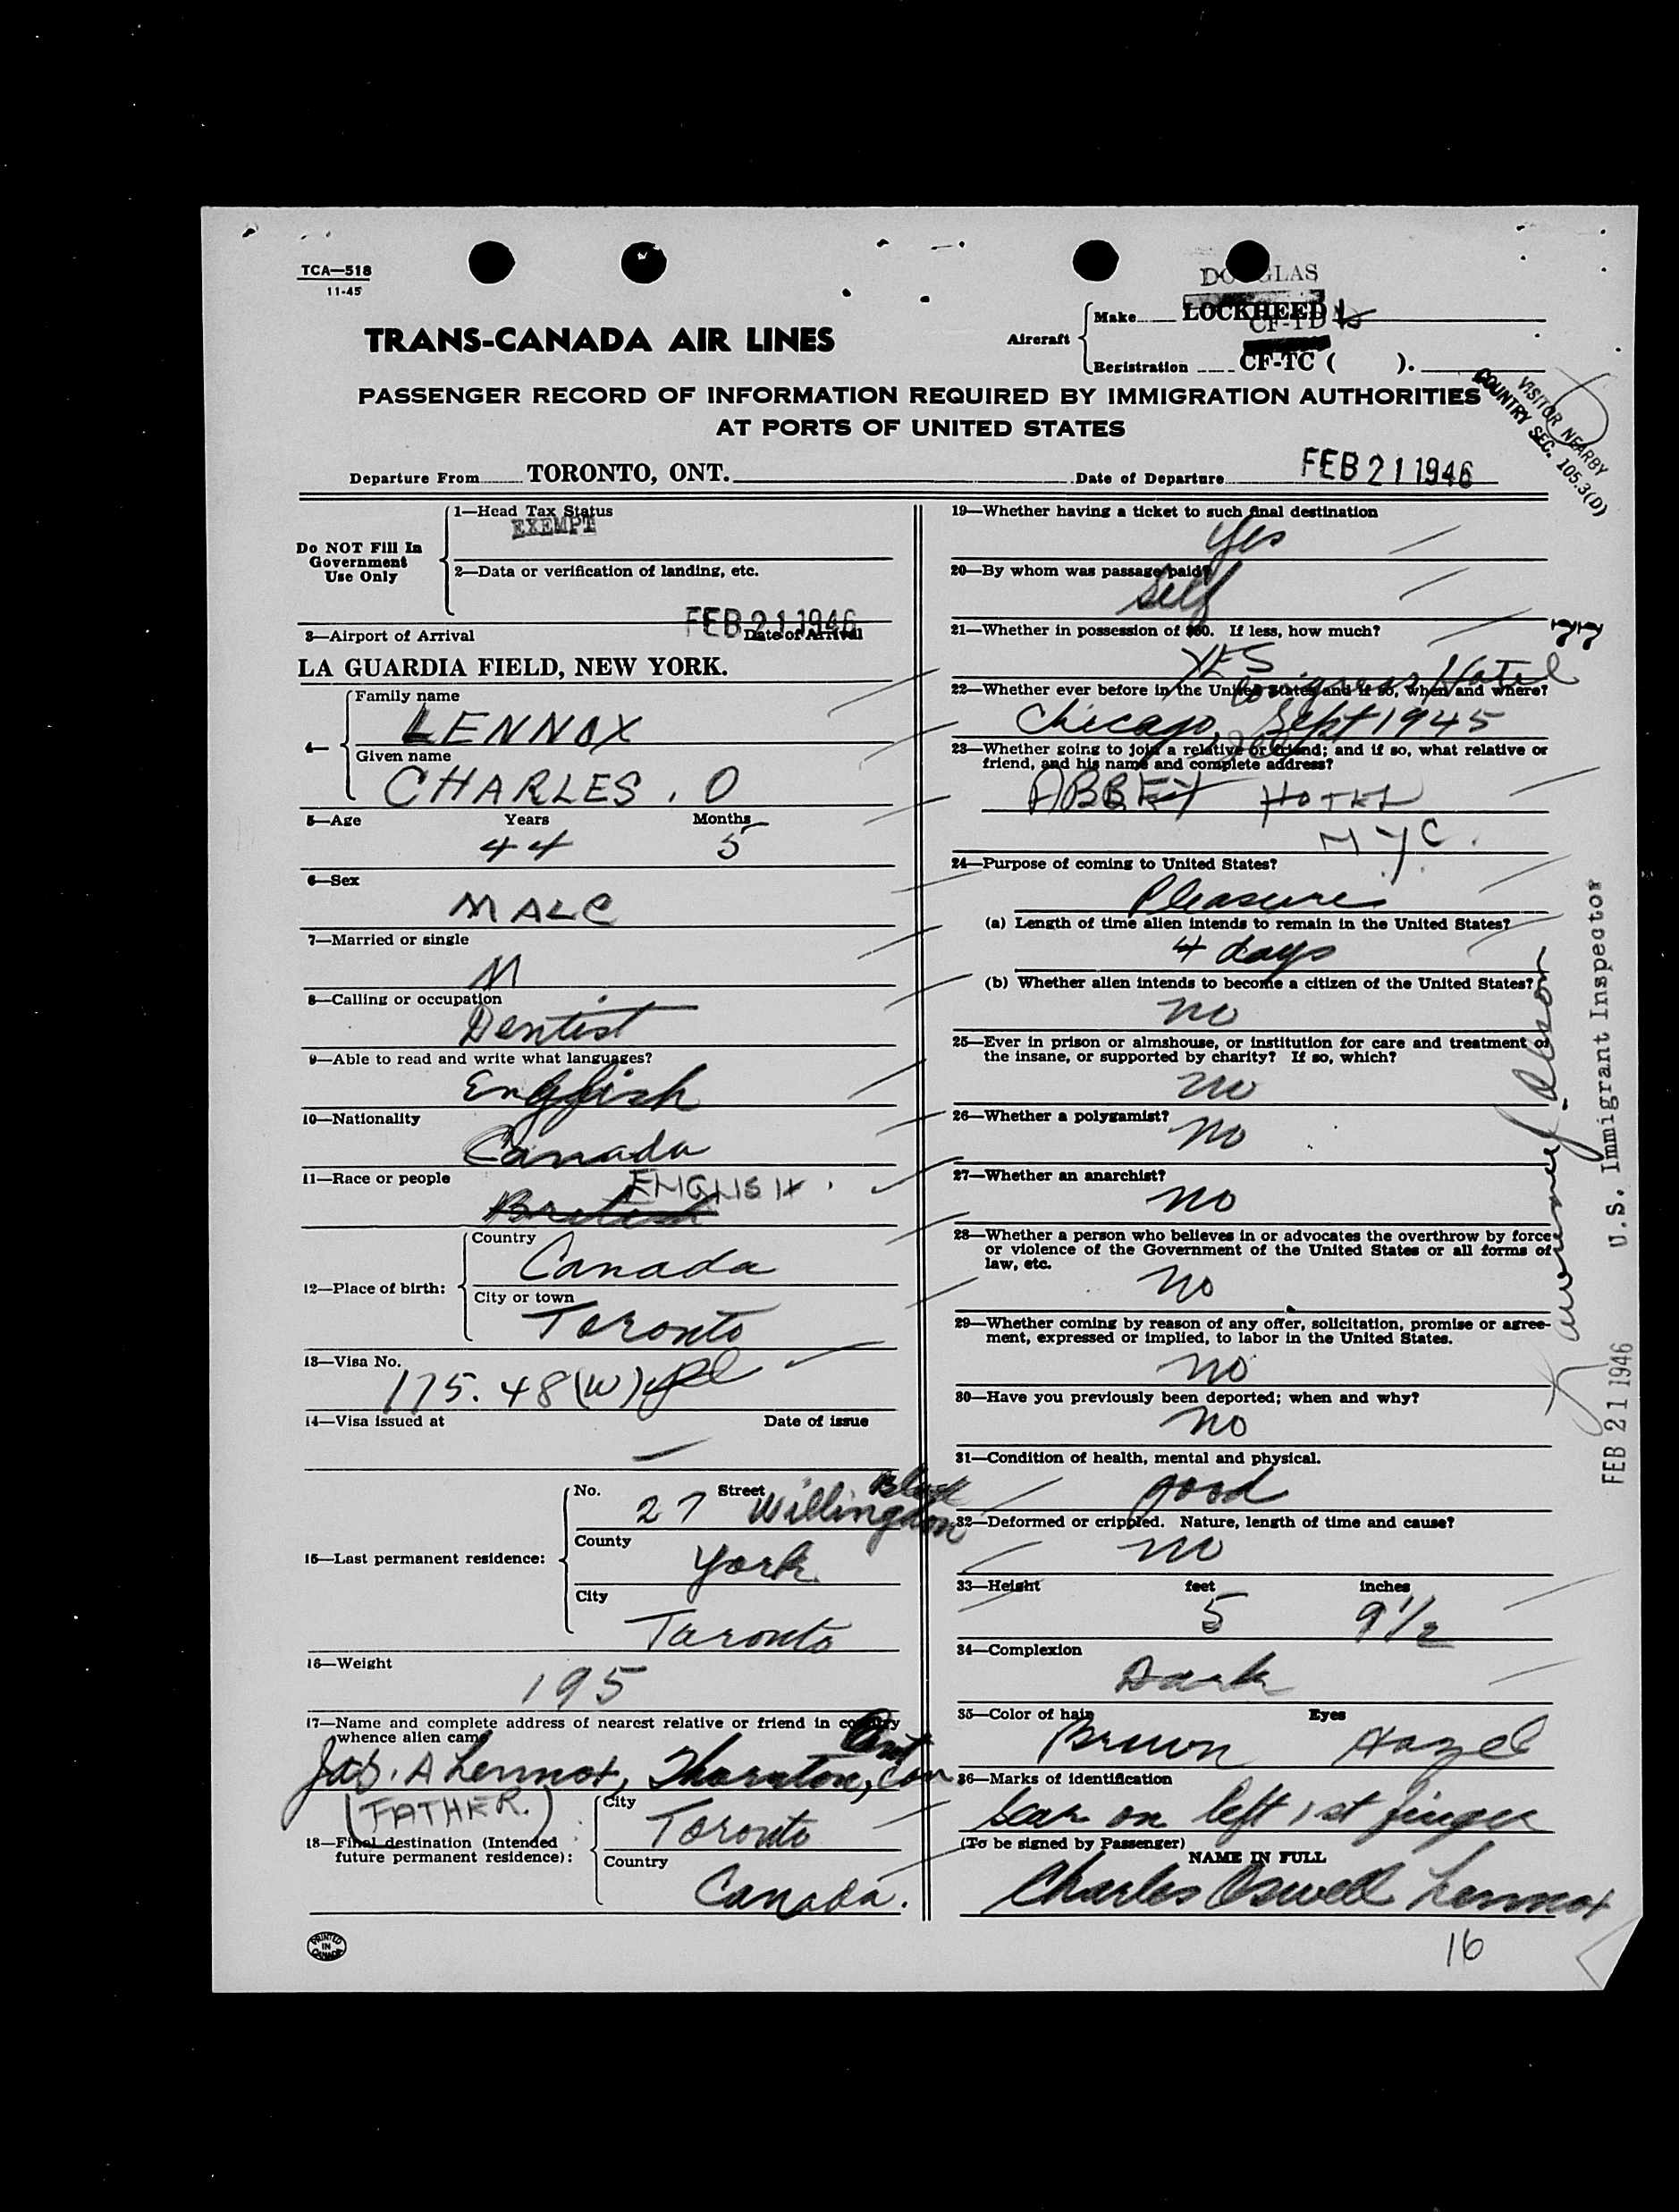 TCA—518
11-45
DOUGLAS
Make LOCKHEED
CF-TD
Aircraft
Registration CF-TC ( ).
TRANS-CANADA AIR LINES
PASSENGER RECORD OF INFORMATION REQUIRED BY IMMIGRATION AUTHORITIES
AT PORTS OF UNITED STATES
VISITOR NEARBY
COUNTRY SEC. 105.3(D)
Departure From TORONTO, ONT. Date of Departure FEB 21 1946
Do NOT Fill In
Government
Use Only
1—Head Tax Status
EXEMPT
2—Data or verification of landing, etc.
FEB 21 1946
3—Airport of Arrival Date of Arrival
LA GUARDIA FIELD, NEW YORK.
4—
Family name
LENNOX
Given name
CHARLES. O
5—Age Years Months
44 5
6—Sex
MALE
7—Married or single
M
8—Calling or occupation
Dentist
9—Able to read and write what languages?
English
10—Nationality
Canada
11—Race or people
ENGLISH.
British
12—Place of birth:
Country
Canada
City or town
Toronto
13—Visa No.
175.48(W)
14—Visa issued at Date of issue
—
15—Last permanent residence:
No. Street
27 Willingdon Blvd
County
York
City
Toronto
16—Weight
195
17—Name and complete address of nearest relative or friend in country
whence alien came
Jas. A Lennox, Thornton, Ont Can
(FATHER.)
18—Final destination (Intended
future permanent residence):
City
Toronto
Country
Canada.
PRINTED
IN
CANADA
19—Whether having a ticket to such final destination
Yes
20—By whom was passage paid?
Self
21—Whether in possession of $60. If less, how much?
YES
22—Whether ever before in the United States and if so, when and where?
Congress Hotel
Chicago, Sept 1945
23—Whether going to join a relative or friend; and if so, what relative or
friend, and his name and complete address?
ABBEY HOTEL
NYC.
24—Purpose of coming to United States?
Pleasure
(a) Length of time alien intends to remain in the United States?
4 days
(b) Whether alien intends to become a citizen of the United States?
no
25—Ever in prison or almshouse, or institution for care and treatment of
the insane, or supported by charity? If so, which?
no
26—Whether a polygamist?
no
27—Whether an anarchist?
no
28—Whether a person who believes in or advocates the overthrow by force
or violence of the Government of the United States or all forms of
law, etc.
no
29—Whether coming by reason of any offer, solicitation, promise or agree-
ment, expressed or implied, to labor in the United States.
no
30—Have you previously been deported; when and why?
no
31—Condition of health, mental and physical.
good
32—Deformed or crippled. Nature, length of time and cause?
no
33—Height feet inches
5 9 1/2
34—Complexion
Dark
35—Color of hair Eyes
Brown Hazel
36—Marks of identification
Scar on left 1st finger
(To be signed by Passenger)
NAME IN FULL
Charles Oswell Lennox
16
FEB 21 1946 U.S. Immigrant Inspector